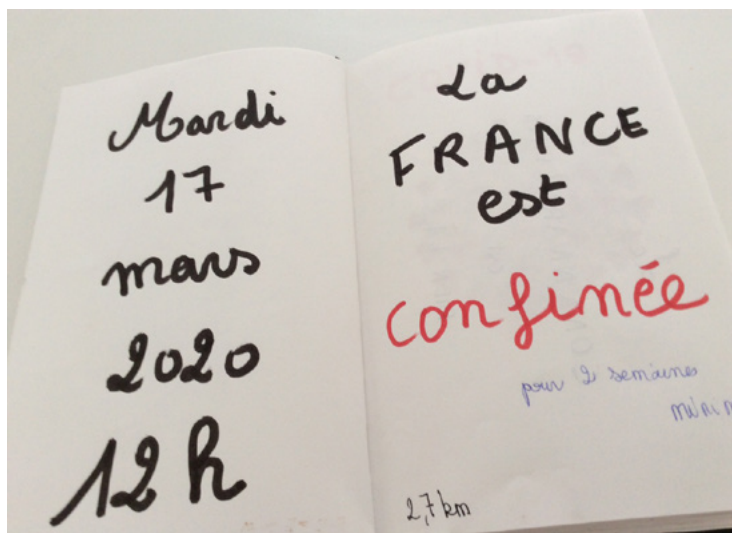 Mardi
17
mars
2020
12h
La
FRANCE
est
confinée
pour 2 semaines
2,7 km